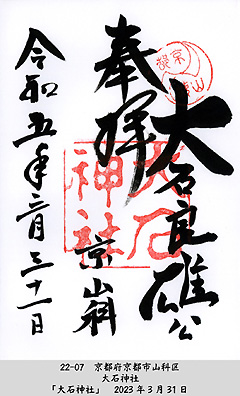 奉拝
大石良雄公
京山科
大石神社
令和五年三月三十一日
22-07 京都府京都市山科区
大石神社
「大石神社」 2023年3月31日